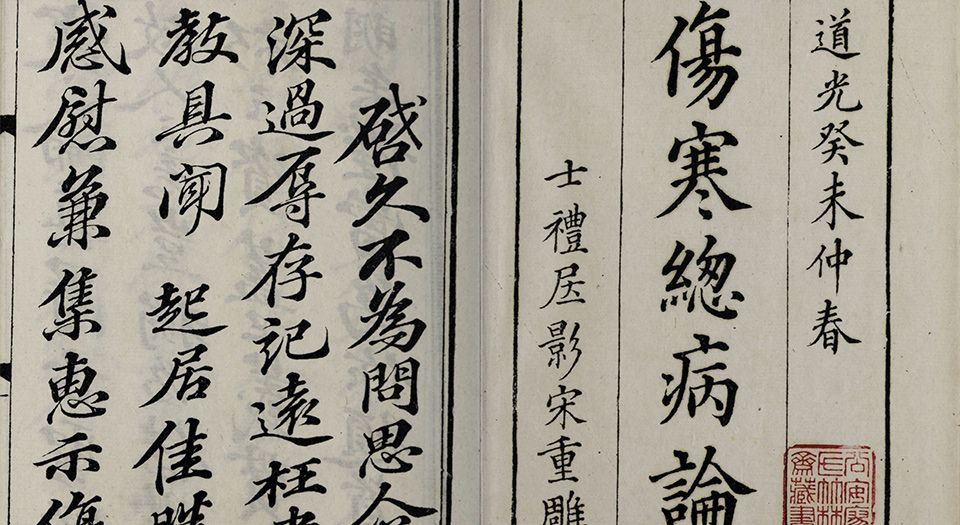 道光癸未仲春
傷寒緫病論
士禮居影宋重雕
啓久不為問思企
深過辱存記遠枉
教具聞 起居佳勝
感慰兼集恵示傷
齋藏書